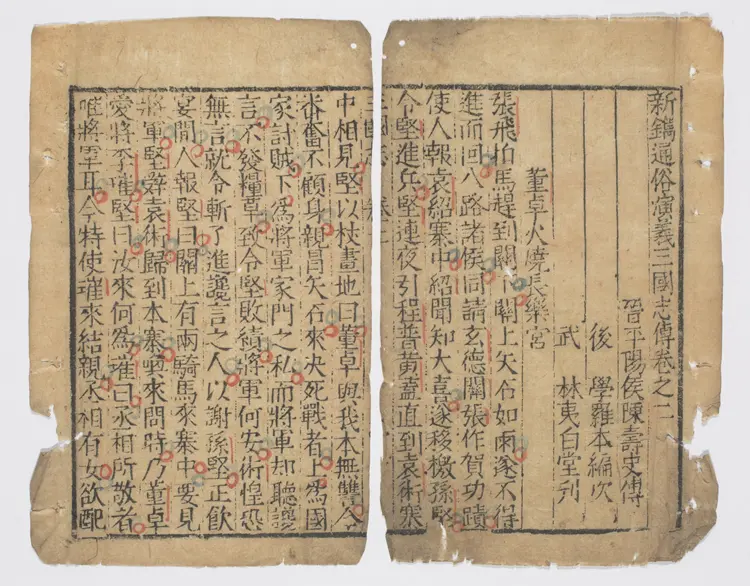 新鐫通俗演義三國志傳卷之二
晋平陽侯陳壽史傳
後學羅本編次
武林夷白堂刊
董卓火燒長樂宮
張飛拍馬趕到關關上矢石如雨遂不得
進而回八路諸侯同請玄德關張作賀功蹟
使人報袁紹寨中紹聞知大喜遂移檄孫堅
令堅進兵堅連夜引程普黃蓋直到袁術寨
三國志 卷二
中相見堅以杖畫地曰董卓與我本無讐今
番奮不顧身親冒矢石來决死戰者上爲國
家討賊下爲將軍家門之私而將軍却聽讒
言不發糧草致令堅敗績將軍何安術惶恐
無言就令斬了進讒言之人以謝孫堅正飲
宴間人報堅曰關上有兩騎馬來寨中要見
將軍堅辞袁術歸到本寨喚來問時乃董卓
愛將李傕堅曰汝來何爲傕曰丞相所敬者
唯將軍耳今特使傕來結親丞相有女欲配